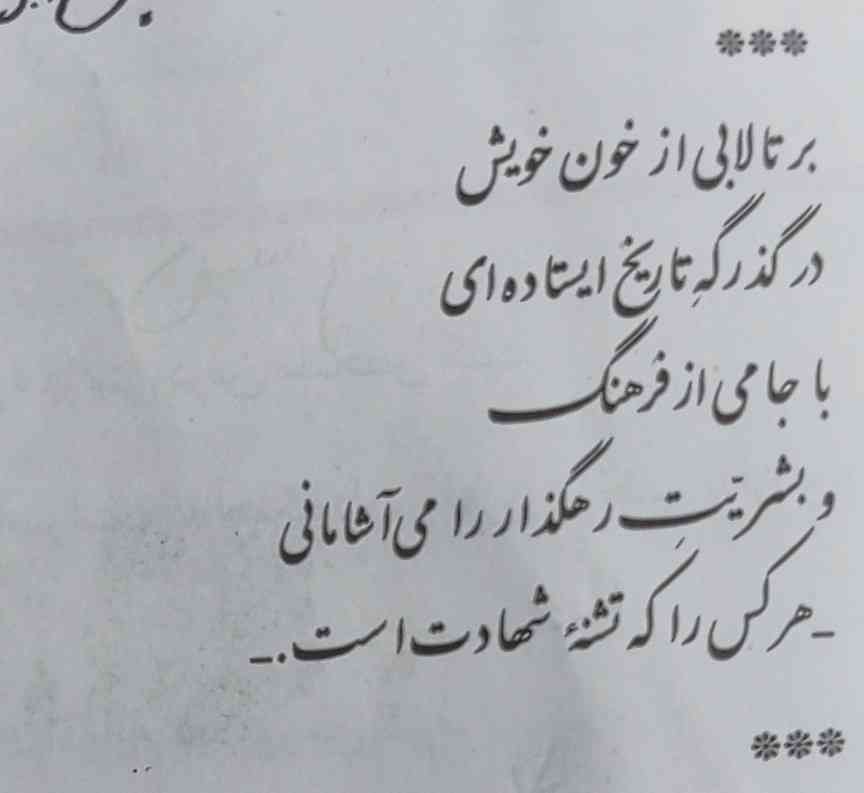 ***
بر تالابی از خون خویش
در گذرگهِ تاریخ ایستاده‌ای
با جامی از فرهنگ
و بشریّتِ رهگذار را می‌آشامانی
ـ هر کس را که تشنهٔ شهادت است. ـ
***